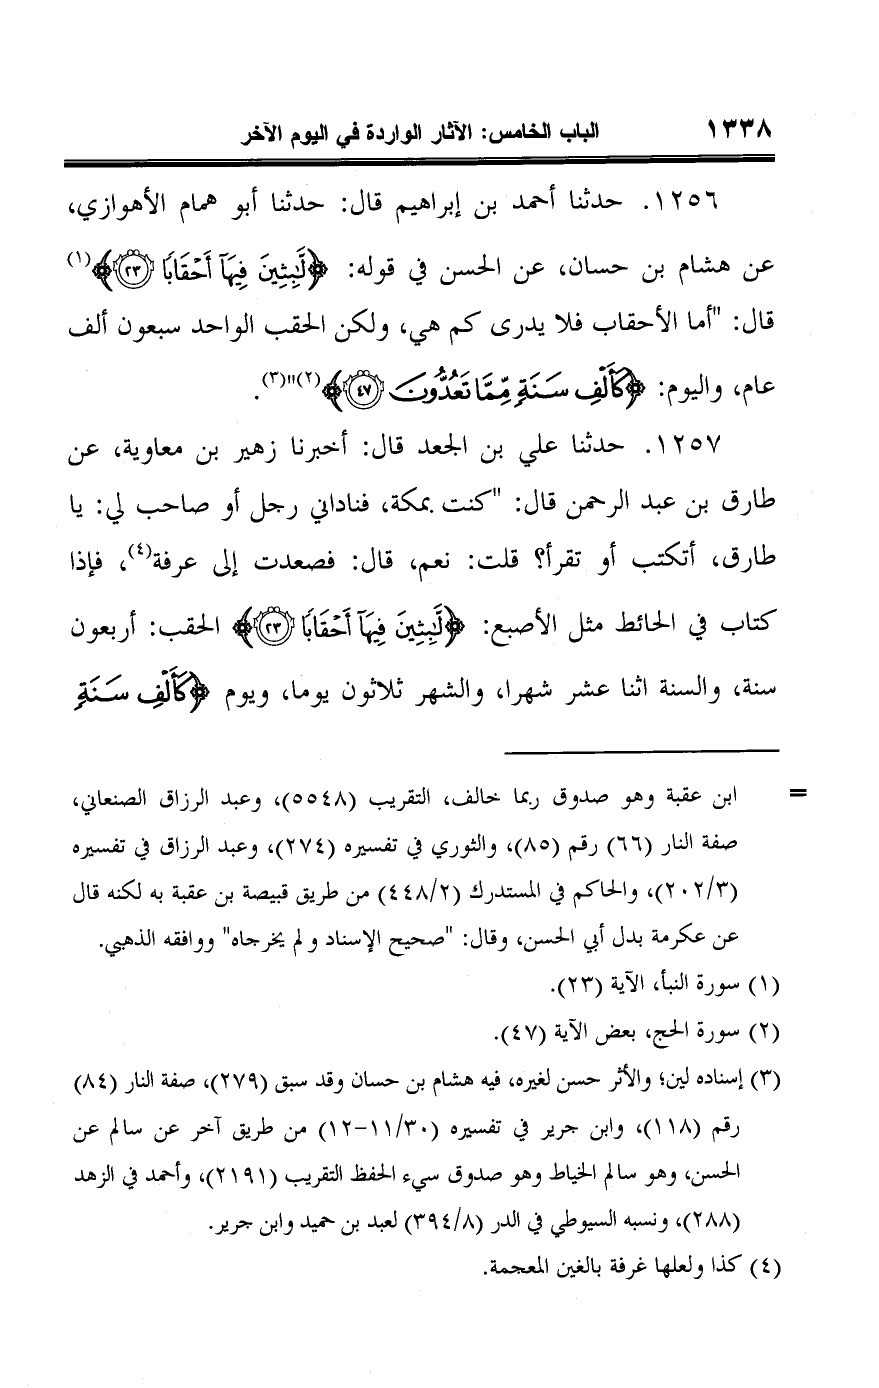 ١٣٣٨ الباب الخامس: الآثار الواردة في اليوم الآخر
١٢٥٦. حدثنا أحمد بن إبراهيم قال: حدثنا أبو همام الأهوازي،
عن هشام بن حسان، عن الحسن في قوله: ﴿لَّٰبِثِينَ فِيهَآ أَحْقَابًا ٢٣﴾(١)
قال: "أما الأحقاب فلا يدرى كم هي، ولكن الحقب الواحد سبعون ألف
عام، واليوم: ﴿كَأَلْفِ سَنَةٍ مِّمَّا تَعُدُّونَ ٤٧﴾(٢)"(٣).
١٢٥٧. حدثنا علي بن الجعد قال: أخبرنا زهير بن معاوية، عن
طارق بن عبد الرحمن قال: "كنت بمكة، فناداني رجل أو صاحب لي: يا
طارق، أتكتب أو تقرأ؟ قلت: نعم، قال: فصعدت إلى عرفة(٤)، فإذا
كتاب في الحائط مثل الأصبع: ﴿لَّٰبِثِينَ فِيهَآ أَحْقَابًا ٢٣﴾ الحقب: أربعون
سنة، والسنة اثنا عشر شهرا، والشهر ثلاثون يوما، ويوم ﴿كَأَلْفِ سَنَةٍ
= ابن عقبة وهو صدوق ربما خالف، التقريب (٥٥٤٨)، وعبد الرزاق الصنعاني،
صفة النار (٦٦) رقم (٨٥)، والثوري في تفسيره (٢٧٤)، وعبد الرزاق في تفسيره
(٢٠٢/٣)، والحاكم في المستدرك (٤٤٨/٢) من طريق قبيصة بن عقبة به لكنه قال
عن عكرمة بدل أبي الحسن، وقال: "صحيح الإسناد ولم يخرجاه" ووافقه الذهبي.
(١) سورة النبأ، الآية (٢٣).
(٢) سورة الحج، بعض الآية (٤٧).
(٣) إسناده لين؛ والأثر حسن لغيره، فيه هشام بن حسان وقد سبق (٢٧٩)، صفة النار (٨٤)
رقم (١١٨)، وابن جرير في تفسيره (١١/٣٠-١٢) من طريق آخر عن سالم عن
الحسن، وهو سالم الخياط وهو صدوق سيء الحفظ التقريب (٢١٩١)، وأحمد في الزهد
(٢٨٨)، ونسبه السيوطي في الدر (٣٩٤/٨) لعبد بن حميد وابن جرير.
(٤) كذا ولعلها غرفة بالغين المعجمة.